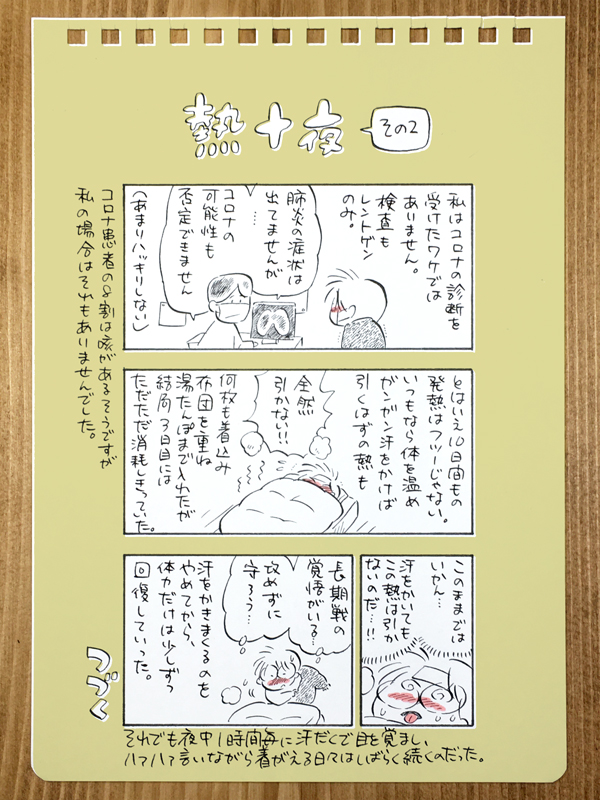 熱十夜
その2
私はコロナの診断を
受けたワケでは
ありません。
検査も
レントゲン
のみ。
肺炎の症状は
出てませんが
…
コロナの
可能性も
否定できません
(あまりハッキリしない)
コロナ患者の8割は咳があるそうですが
私の場合はそれもありませんでした。
とはいえ10日間もの
発熱はフツーじゃない。
いつもなら体を温め
ガンガン汗をかけば
引くはずの熱も
全然
引かない!!
何枚も着込み
布団を重ね
湯たんぽまで入れたが
結局3日目には
ただただ消耗しきっていた。
このままでは
いかん…
汗をかいても
この熱は引か
ないのだ…!!
長期戦の
覚悟がいる…
攻めずに
守ろう…
汗をかきまくるのを
やめてから、
体力だけは少しずつ
回復していった。
つづく
それでも夜中1時間毎に汗だくで目を覚まし、
ハァハァ言いながら着がえる日々はしばらく続くのだった。